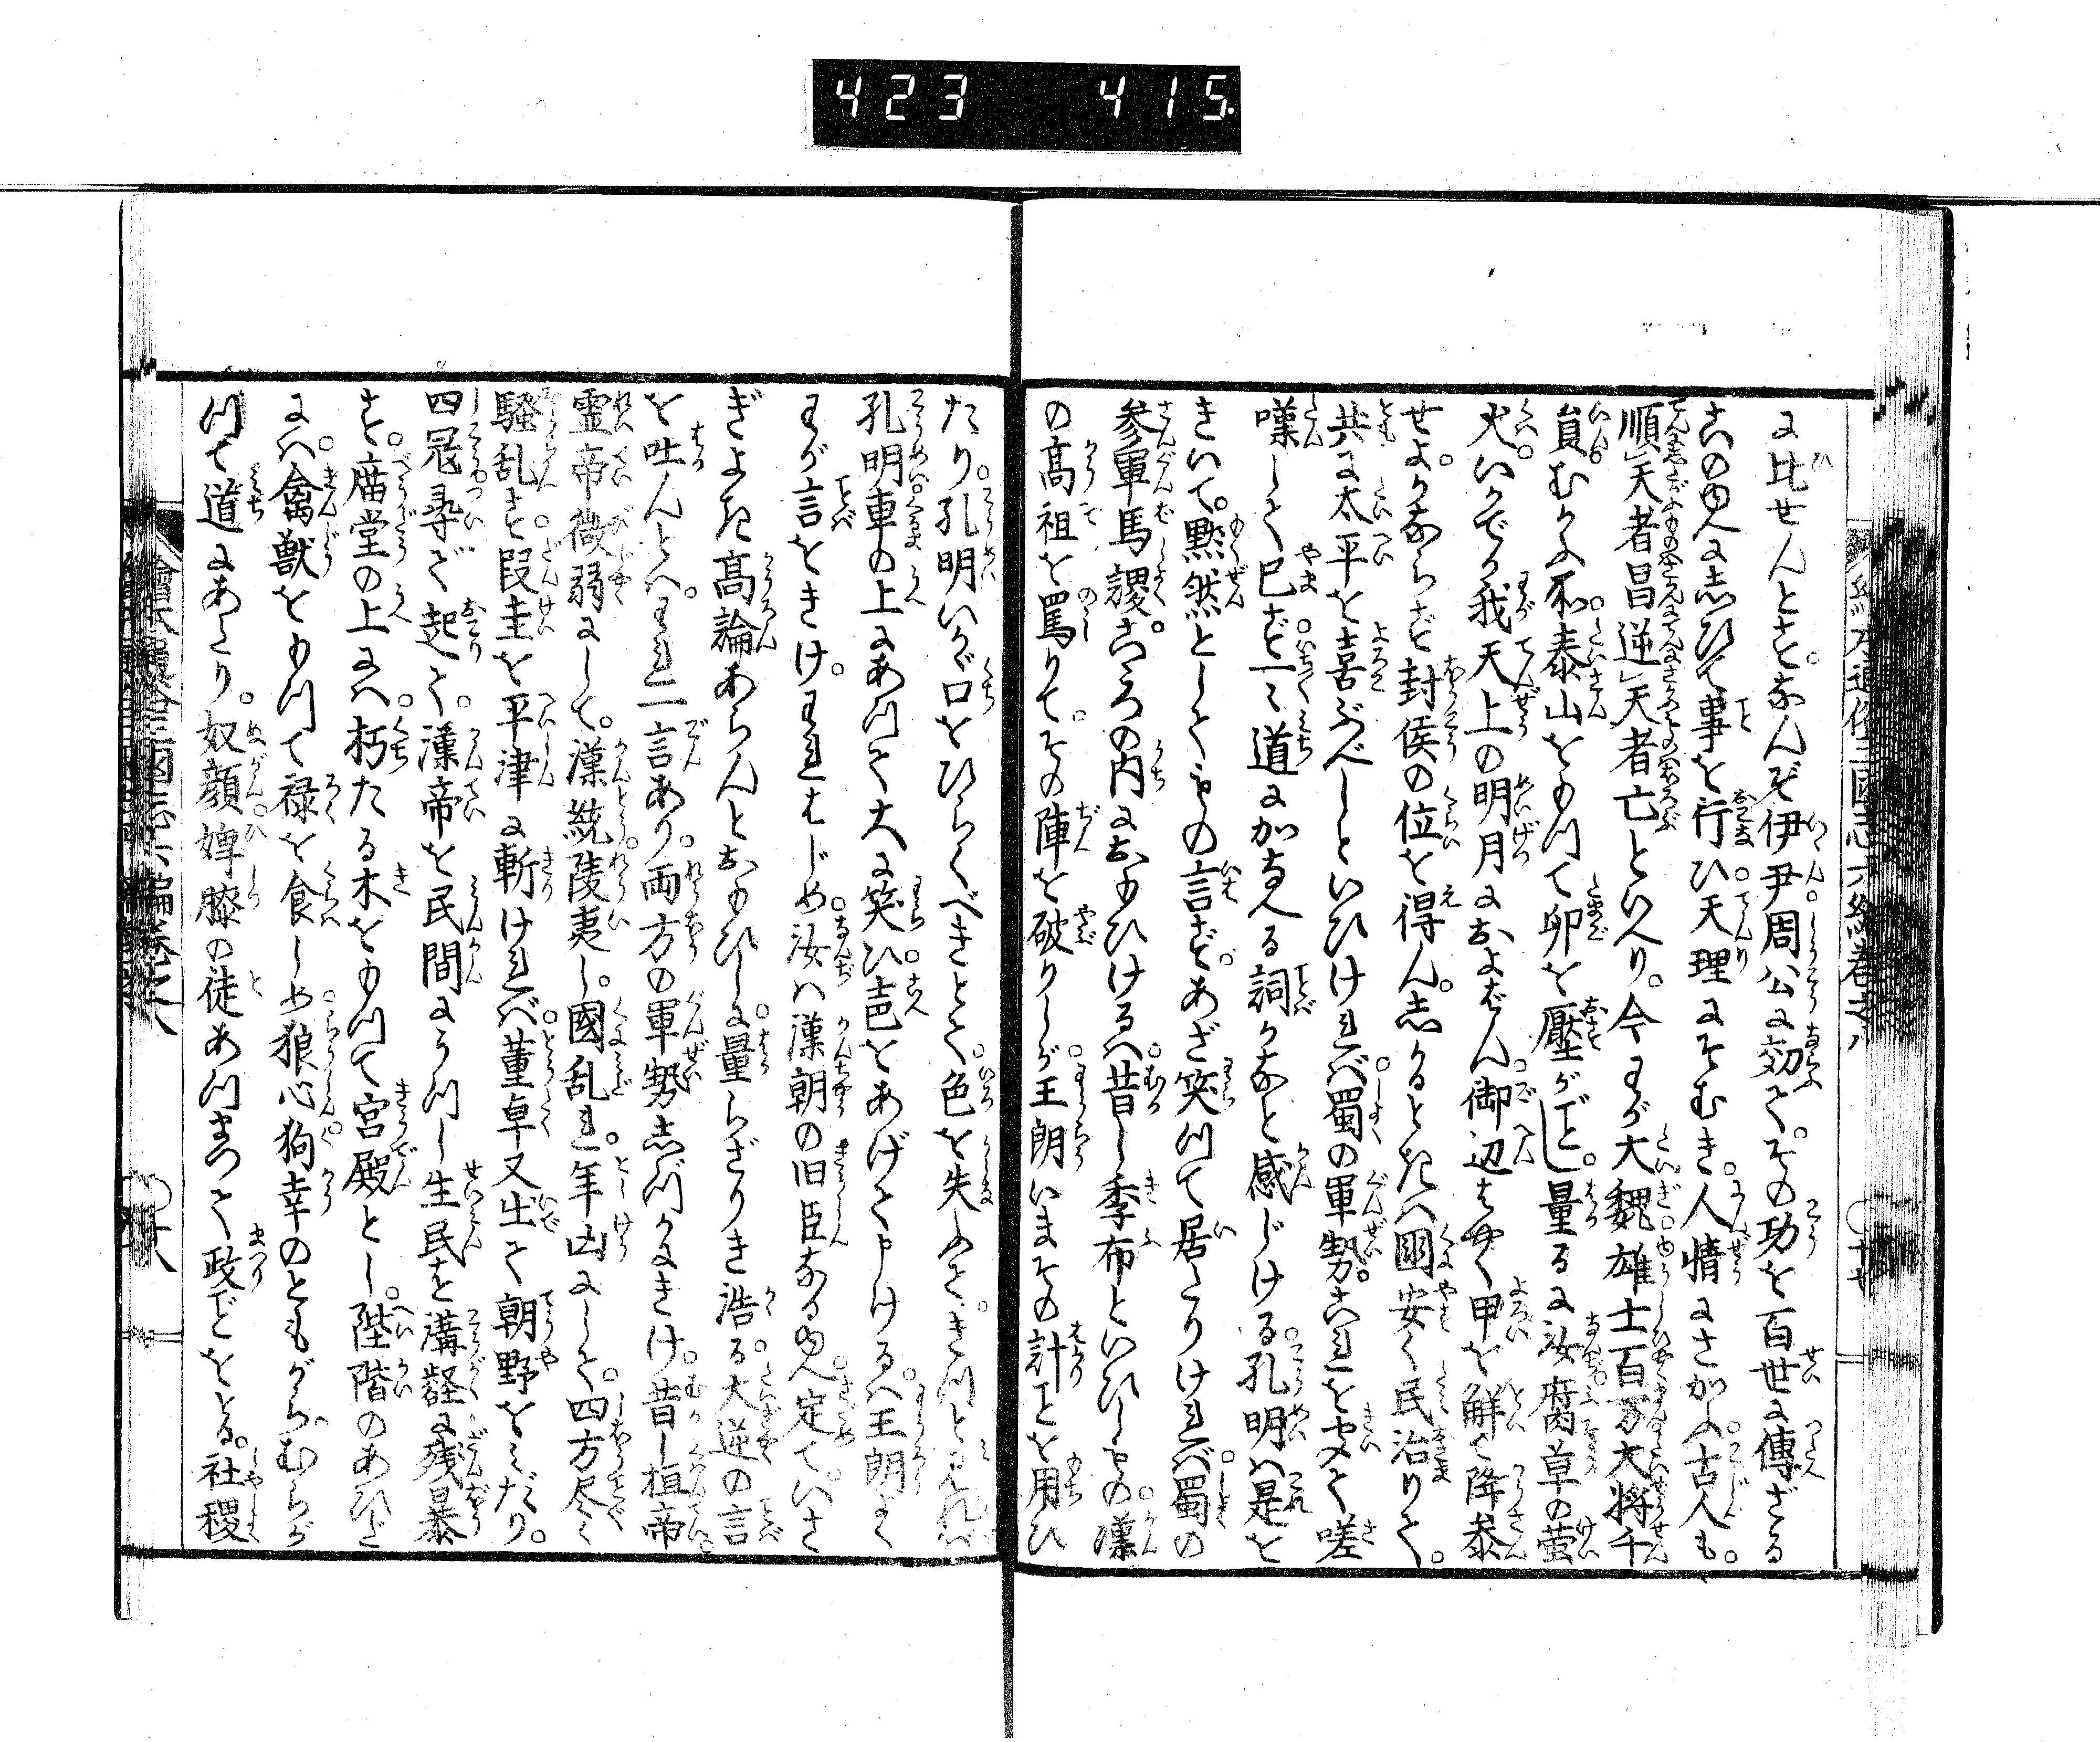 423 415.
に比せんとす。なんぞ伊尹周公に効て。その功を百世に傳ざる
古の中人に志ひて事を行ひ天理にそむき。人情にさかふ古人も。
順天者昌逆天者亡といへり。今わが大魏雄士百万大将千
員むかふ不泰山をもつて卵を壓がごとし。量るに汝腐草の蛍
火いかでか我天上の明月におよばん御辺はやく甲を觧て降参
せよかならず封侯の位を得ん。志かるときハ國安く民治りて。
共に太平を喜ぶべしといひけれバ蜀の軍勢。これをきて嗟
嘆して已ず一に道にかなへる詞かなと感じける孔明ハ是を
きいて。黙然としてもの言ず。あざ笑つて居たりけれバ蜀の
参軍馬謖。こころの内におもひけるハ昔し季布といひしもの漢
の高祖を罵りてその陣を破りしが王朗いまその計ことを用ひ
たり。孔明いかゞ口をひらくべきとて色を失ふて。きつと見れバ
孔明車の上にあつて大に笑ひ声をあげて申けるハ王朗よく
わが言をきけ。われはじめ汝ハ漢朝の旧臣なるゆへ定ていさ
ぎよき高論あらんとおもひしに量らざりき浩る大逆の言
を吐んとハ。われ一言あり。両方の軍勢志づかにきけ。昔し桓帝
霊帝微弱にして。漢統陵夷し。國乱れ年凶にして。四方尽く
騒乱す段圭を平津に斬けれバ董卓又出て朝野をみだり。
四冦尋で起て漢帝を民間にうつし生民を溝壑に残暴
す。庿堂の上にハ朽たる木をもつて宮殿とし。陛階のあひだ
にハ禽獣をもつて禄を食しめ狼心狗幸のともがらむらが
つて道にあたり。奴顔婢膝の徒あつまつて政ごとをとる。社稷